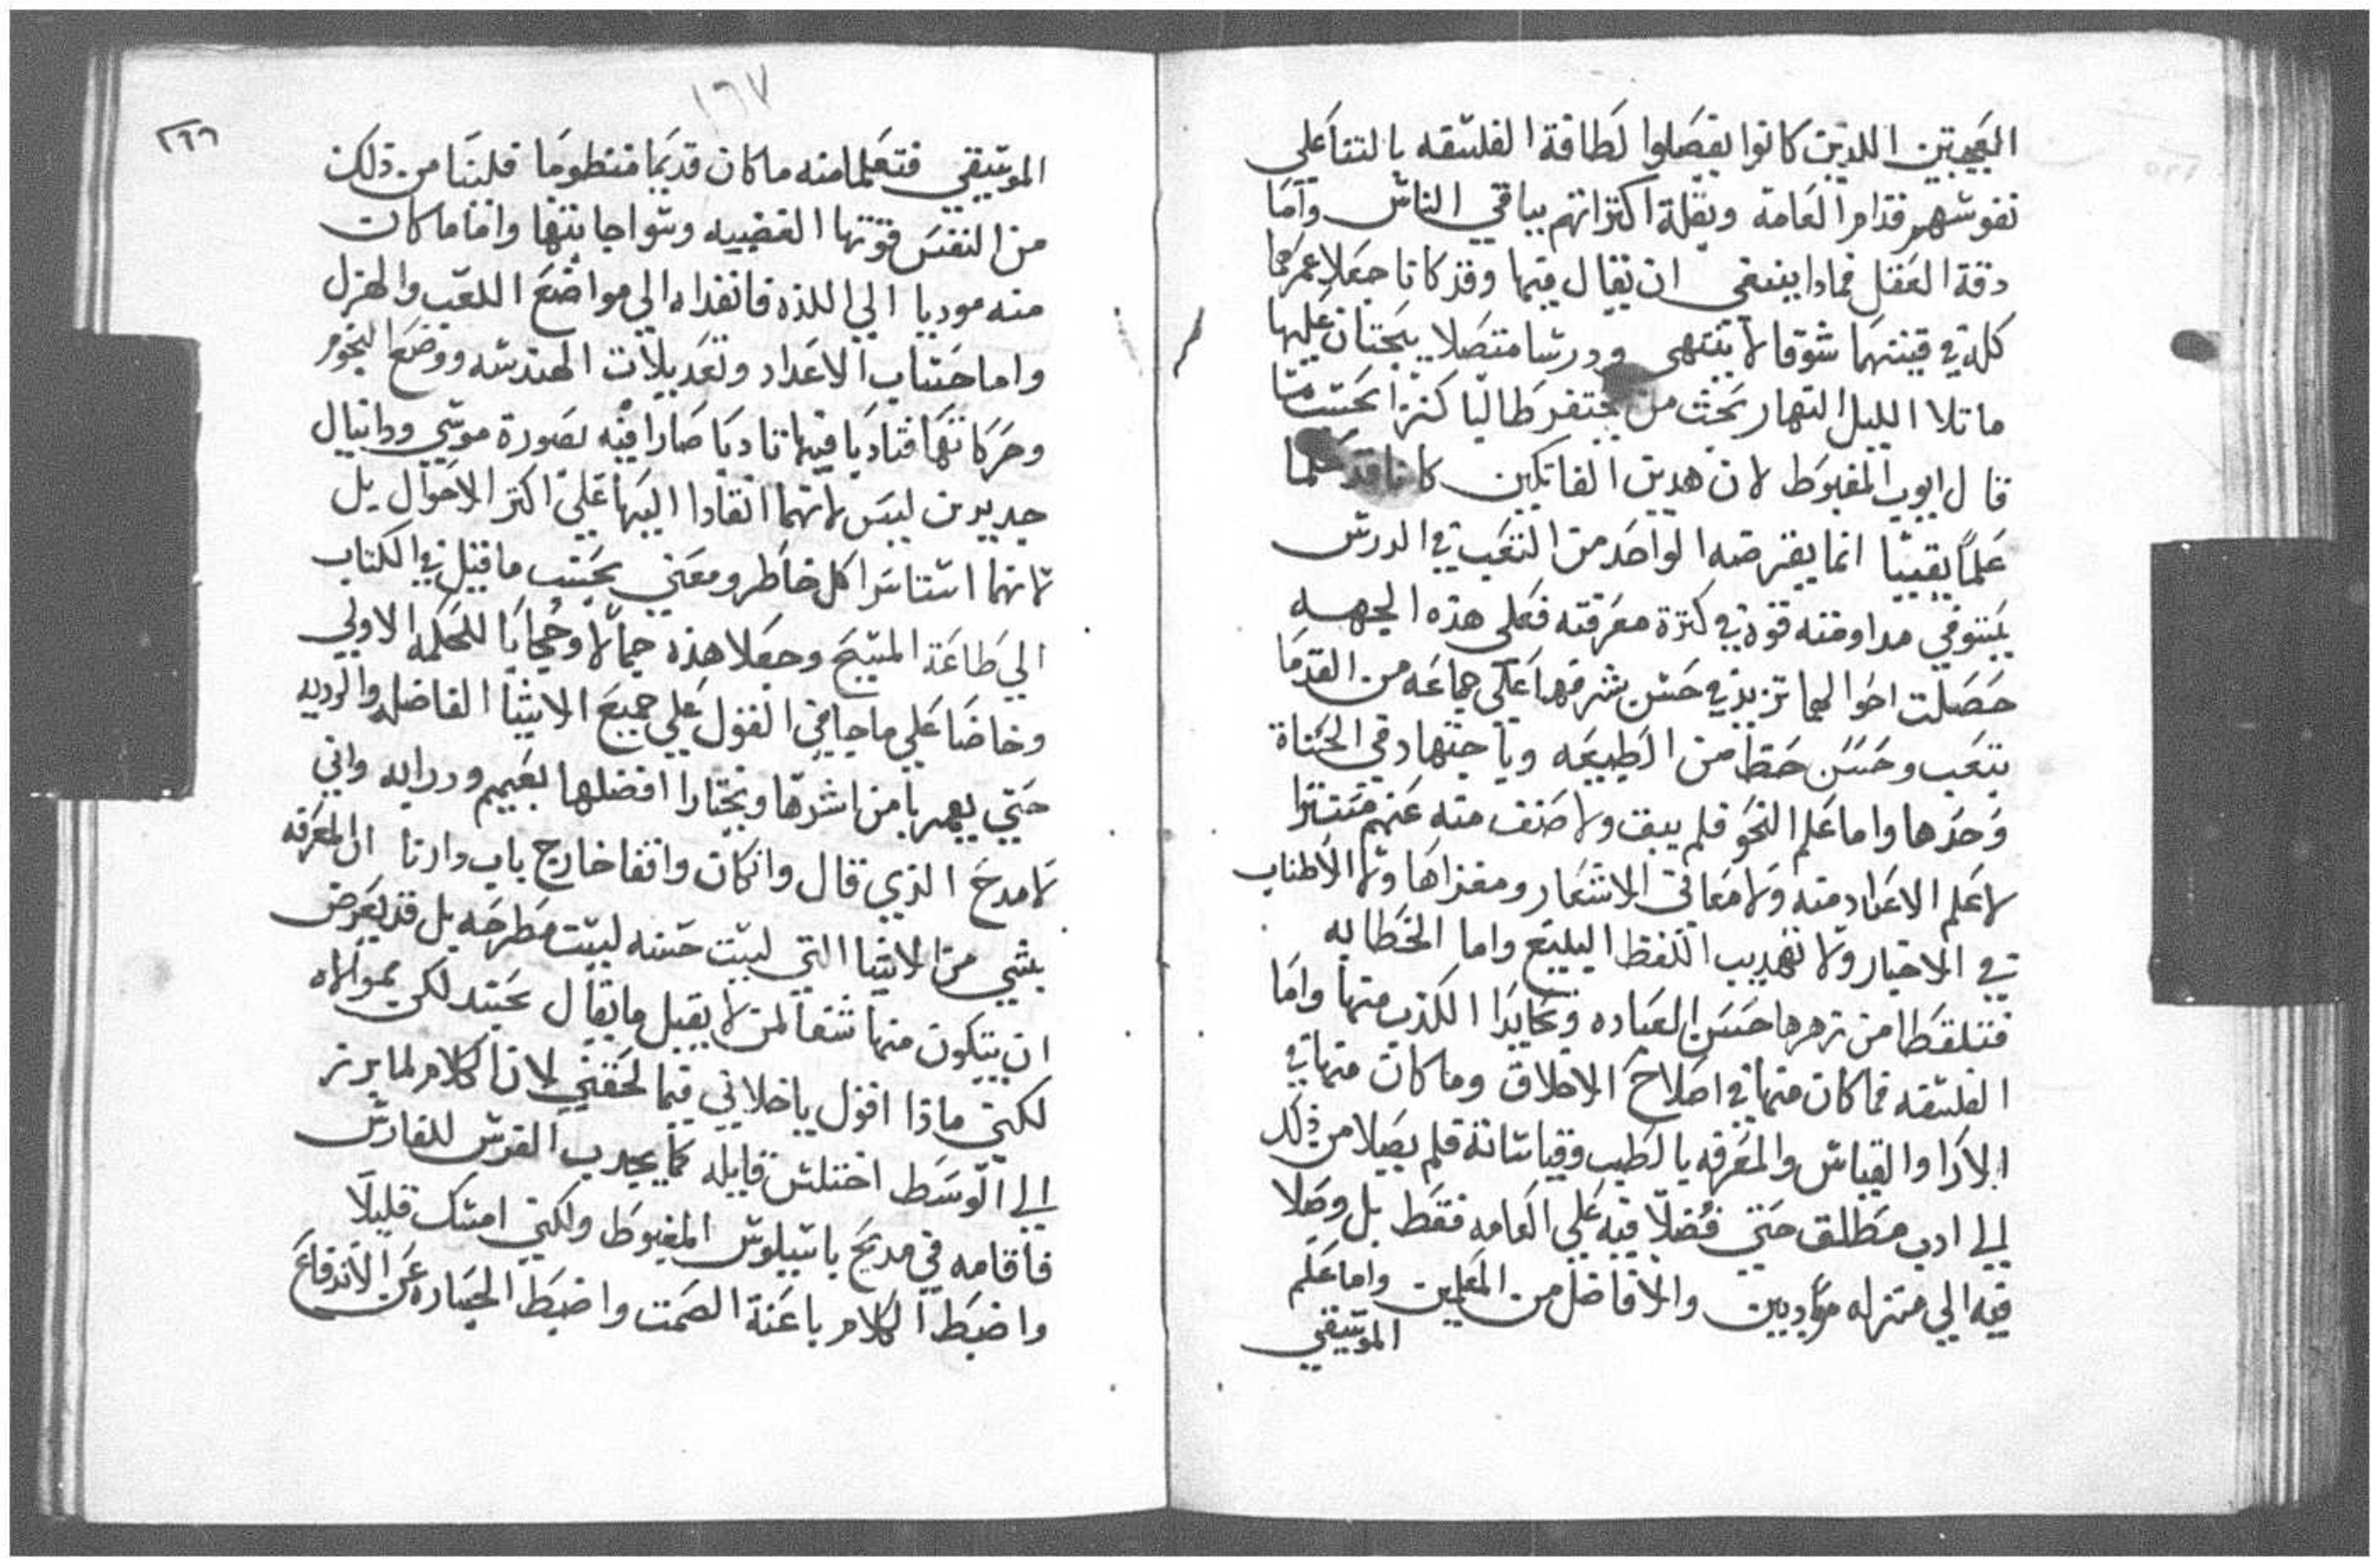 العجيبين اللذين كانوا يفصلوا لطافة الفلسفه بالتنا علي
نفوسهم قدام العامه وبقلة اكتراثهم بباقي الناس واما
دقة العقل فماذا ينبغي ان يقال فيها وقد كانا جعلا عمرهما
كله في قينتهما شوقا لا ينتهي ودرسا متصلا يبحثان عليها
ما تلا الليل النهار بحث من يحتفر طالبا كنزا بحسب ما
قال ايوب المغبوط لان هدين الفاتكين كانا قد علما
علمًا يقينيا انما يقترضه الواحد من التعب في الدرس
يستوفي مداومته قوة في كثرة معرفته فعلي هذه الجهه
حصلت احوالهما تزيد في حسن شرفهما علي جماعه من القدما
بتعب وحسن حظا من الطبيعه وباجتهاد في الحياة
وحدها واما علم النحو فلم يبق ولا صنف منه عنهم مستترا
لا علم الاعداد منه ولا معاني الاشعار ومغزاها ولا الاطناب
في الاخبار ولا تهديب اللفظ البليغ واما الخطابه
فتلقطا من زهرها حسن العباره وتحايدا الكذب منها واما
الفلسفه فما كان منها في اصلاح الاخلاق وما كان منها في
الارا والقياس والمعرفه بالطب وقياساته فلم يصلا من ذلك
الي ادب مطلق حتي فضلا فيه علي العامه فقط بل وصلا
فيه الي منزله مؤدبين والافاضل من المعلمين واما علم
الموسيقي
١٦٧
٢٦٦
الموسيقي فتعلما منه ما كان قديما منظوما فلينا من ذلك
من النفس قوتها الغضبيه وسواجانيها واما ما كان
منه موديا الي اللذه فانفداه الي مواضع اللعب والهزل
واما حساب الاعداد وتعديلات الهندسه ووضع النجوم
وحركاتها فتادبا فيها تادبا صارا فيه بصورة موسي ودانيال
جديدين ليس لانهما انقادا اليها علي اكثر الاحوال بل
لانهما استاسرا كل خاطر ومعني بحسب ما قيل في الكتاب
الي طاعة المسيح وجعلا هذه جمالا وحجابا للحكمه الاولي
وخاضا علي ما جا في القول علي جميع الاشيا الفاضله والرديه
حتي يهربا من اشرها ويختارا افضلها بفهم ودرايه واني
لامدح الذي قال وان كان واقفا خارج باب دارنا ان المعرفه
بشي من الاشيا التي ليست حسنه ليست مطرحه بل قد يعرض
ان يتكون منها شفا لمن لا يقبل ما يقال بحسد لكن بموالاه
لكني ماذا اقول ياخلاني فيما لحقني لان الكلام لما برز
الي الوسط اختلس قايله كما يجدب الفرس للفارس
فاقامه في مديح باسيلوس المغبوط ولكني امسك قليلًا
واضبط الكلام باعنة الصمت واضبط العباره عن الاندفاع